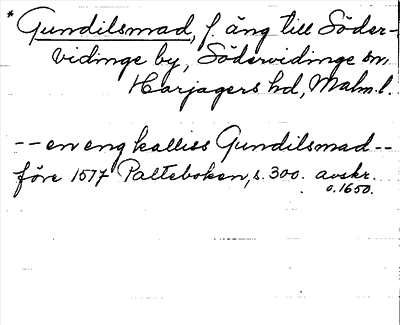 * Gundilsmad, f. äng till Söder-
vidinge by, Södervidinge sn,
Harjagers hd, Malm.l.
-- en eng kalliss Gundilsmad --
före 1577 Palteboken, s. 300. avskr.
o. 1650.